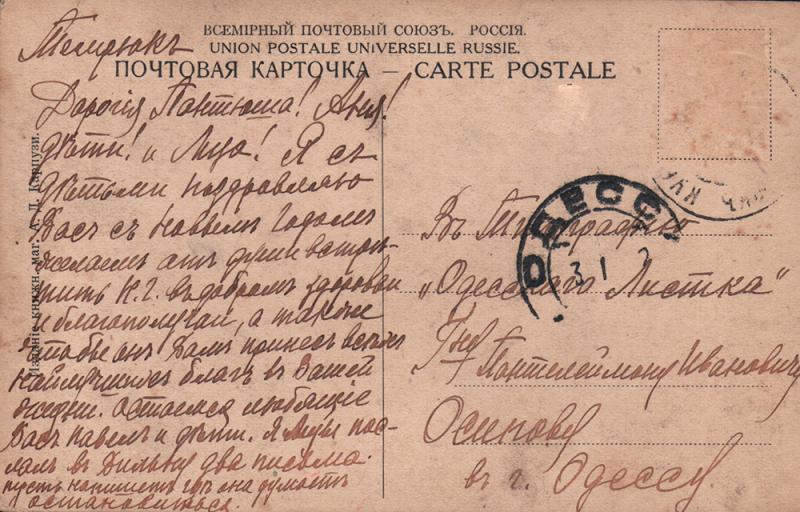 ВСЕМІРНЫЙ ПОЧТОВЫЙ СОЮЗЪ. РОССІЯ.
UNION POSTALE UNIVERSELLE RUSSIE.
ПОЧТОВАЯ КАРТОЧКА — CARTE POSTALE
Темрюкъ
Дорогія Пантюша! Аня!
дѣти! и Муа! Я съ
дѣтьми поздравляю
Васъ съ Новымъ Годомъ
желаемъ отъ души встрѣ-
тить Н.Г. въ добромъ здоровьи
и благополучіи, а также
чтобы онъ Вамъ принесъ всѣхъ
наилучшихъ благъ въ Вашей
жизни. Остаемся любящіе
Васъ Павелъ и дѣти. Я Муѣ пос-
лалъ въ Вильну два письма.
пусть напишетъ гдѣ она думаетъ
остановиться.
Изданіе книжн. маг. А. Д. Карпузи.
ОДЕССА
3 1
Въ Типографію
„Одесскаго Листка"
Гну
Пантелеймону Ивановичу
Осипову
въ г. Одессу.